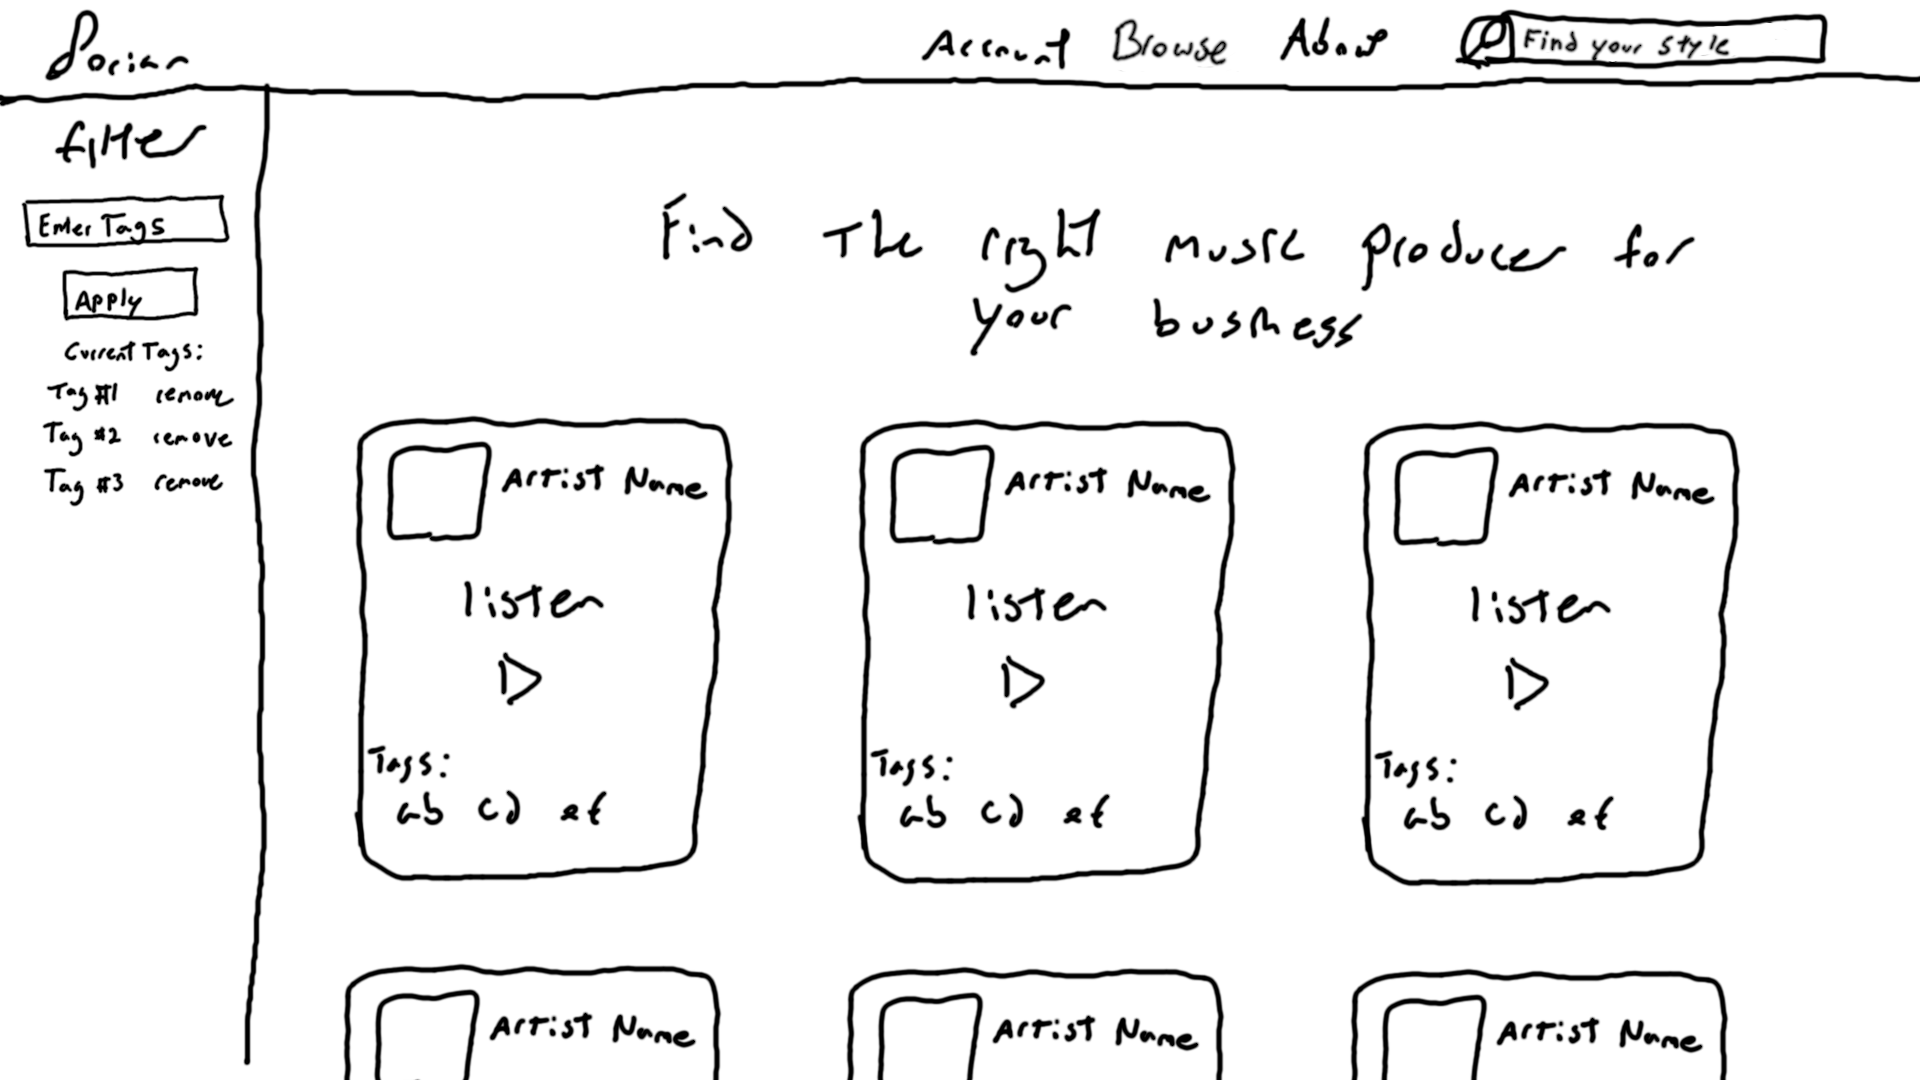 Dorian
Account Browse About Find your style
filter
Enter Tags
Apply
Current Tags:
Tag #1 remove
Tag #2 remove
Tag #3 remove
Find The right music producer for
your business
Artist Name
listen
Tags:
ab cd ef
Artist Name
listen
Tags:
ab cd ef
Artist Name
listen
Tags:
ab cd ef
Artist Name
Artist Name
Artist Name